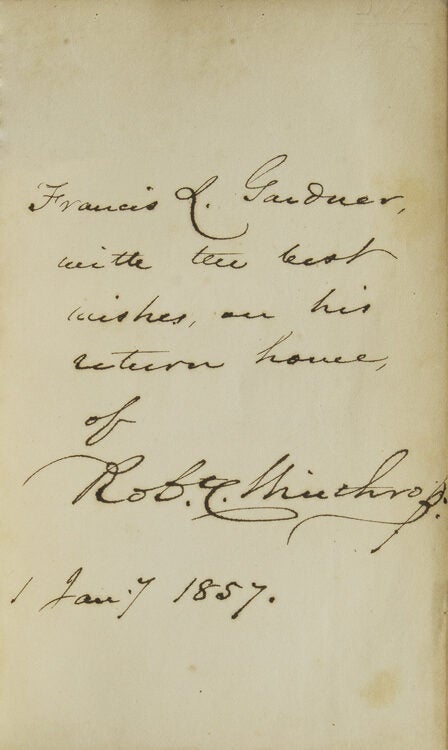 Francis L. Gardner,
with the best
wishes, on his
return home,
of
Robt. C. Winthrop.
1 Jan:y 1857.